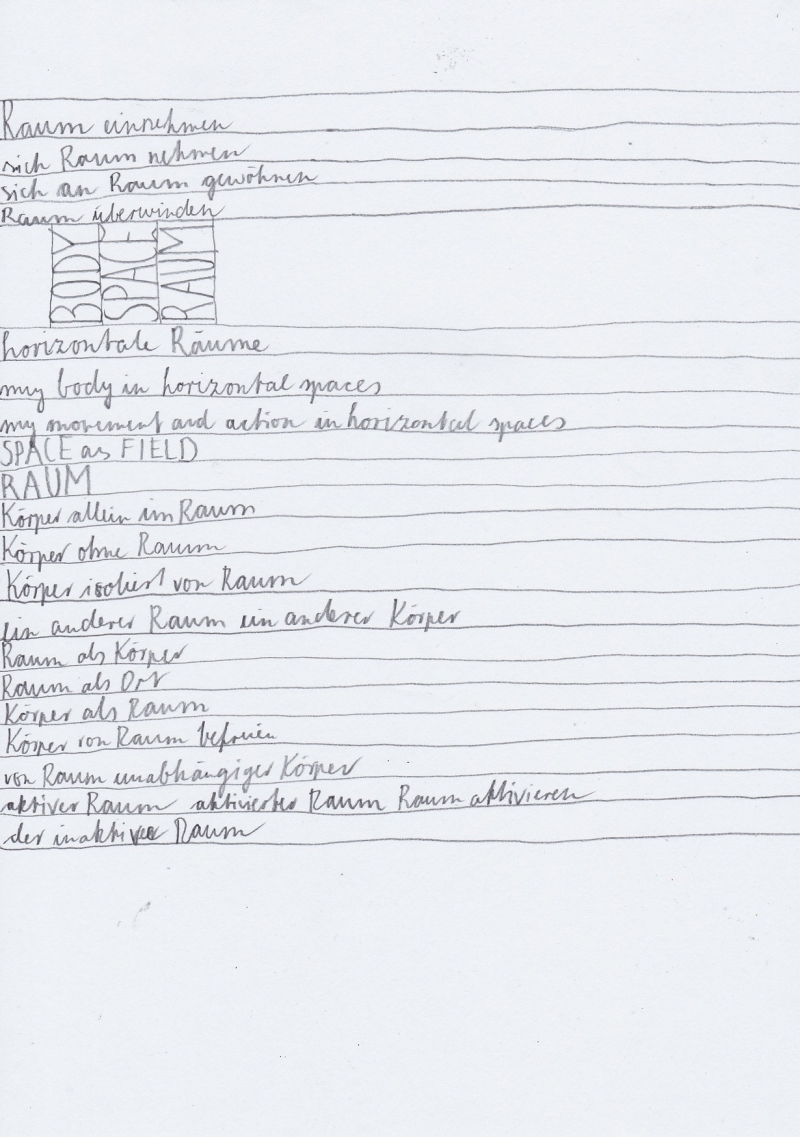 Raum einnehmen
sich Raum nehmen
sich an Raum gewöhnen
Raum überwinden
BODY
SPACE
RAUM
horizontale Räume
my body in horizontal spaces
my movement and action in horizontal spaces
SPACE as FIELD
RAUM
Körper allein im Raum
Körper ohne Raum
Körper isoliert von Raum
ein anderer Raum ein anderer Körper
Raum als Körper
Raum als Ort
Körper als Raum
Körper von Raum befreien
von Raum unabhängiger Körper
aktiver Raum aktivierter Raum Raum aktivieren
der inaktive Raum